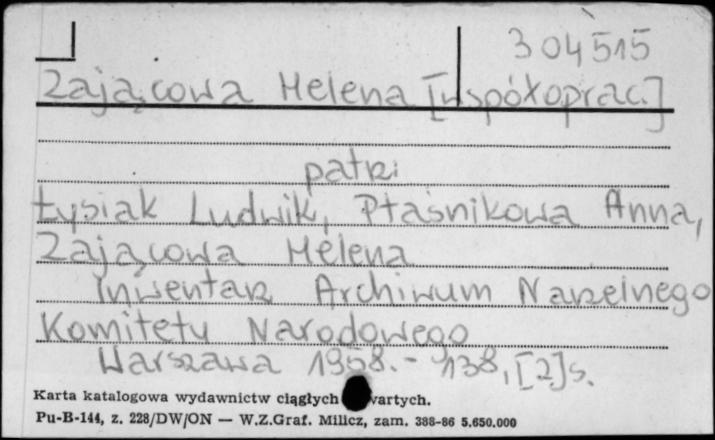 304515
Zającowa Helena [współoprac.]
patrz
Łysiak Ludwik, Ptaśnikowa Anna,
Zającowa Helena
Inwentarz Archiwum Naczelnego
Komitetu Narodowego
Warszawa 1958. - 138, [2] s.
Karta katalogowa wydawnictw ciągłych wartych.
Pu-B-144, z. 228/DW/ON — W.Z.Graf. Milicz, zam. 388-86 5.650.000